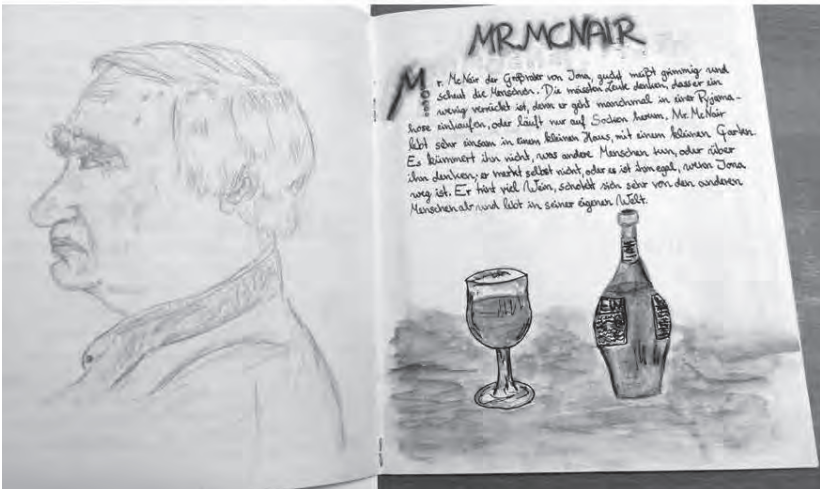 MR. MCNAIR
Mr. McNair der Großvater von Jona, guckt meißt grimmig und
scheut die Menschen. Die meissten Leute denken, dass er ein
wenig verrückt ist, denn er geht manchmal in einer Pyjama-
hose einkaufen, oder läuft nur auf Socken herum. Mr. McNair
lebt sehr einsam in einem kleinen Haus, mit einem kleinen Garten.
Es kümmert ihn nicht, was andere Menschen tun, oder über
ihn denken, er merkt selbst nicht, oder es ist ihm egal, wenn Jona
weg ist. Er trinkt viel Wein, schottet sich sehr von den anderen
Menschen ab und lebt in seiner eigenen Welt.